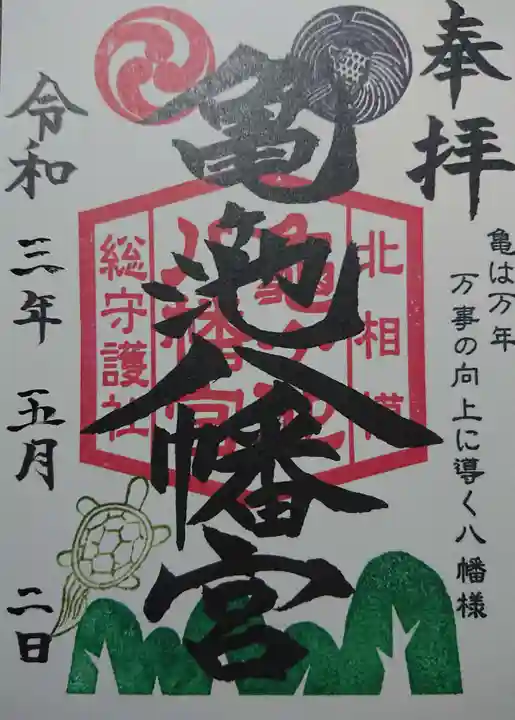 奉拝
亀は万年
万事の向上に導く八幡様
北相模
亀ヶ池
八幡宮
総守護社
亀池八幡宮
令和三年五月二日